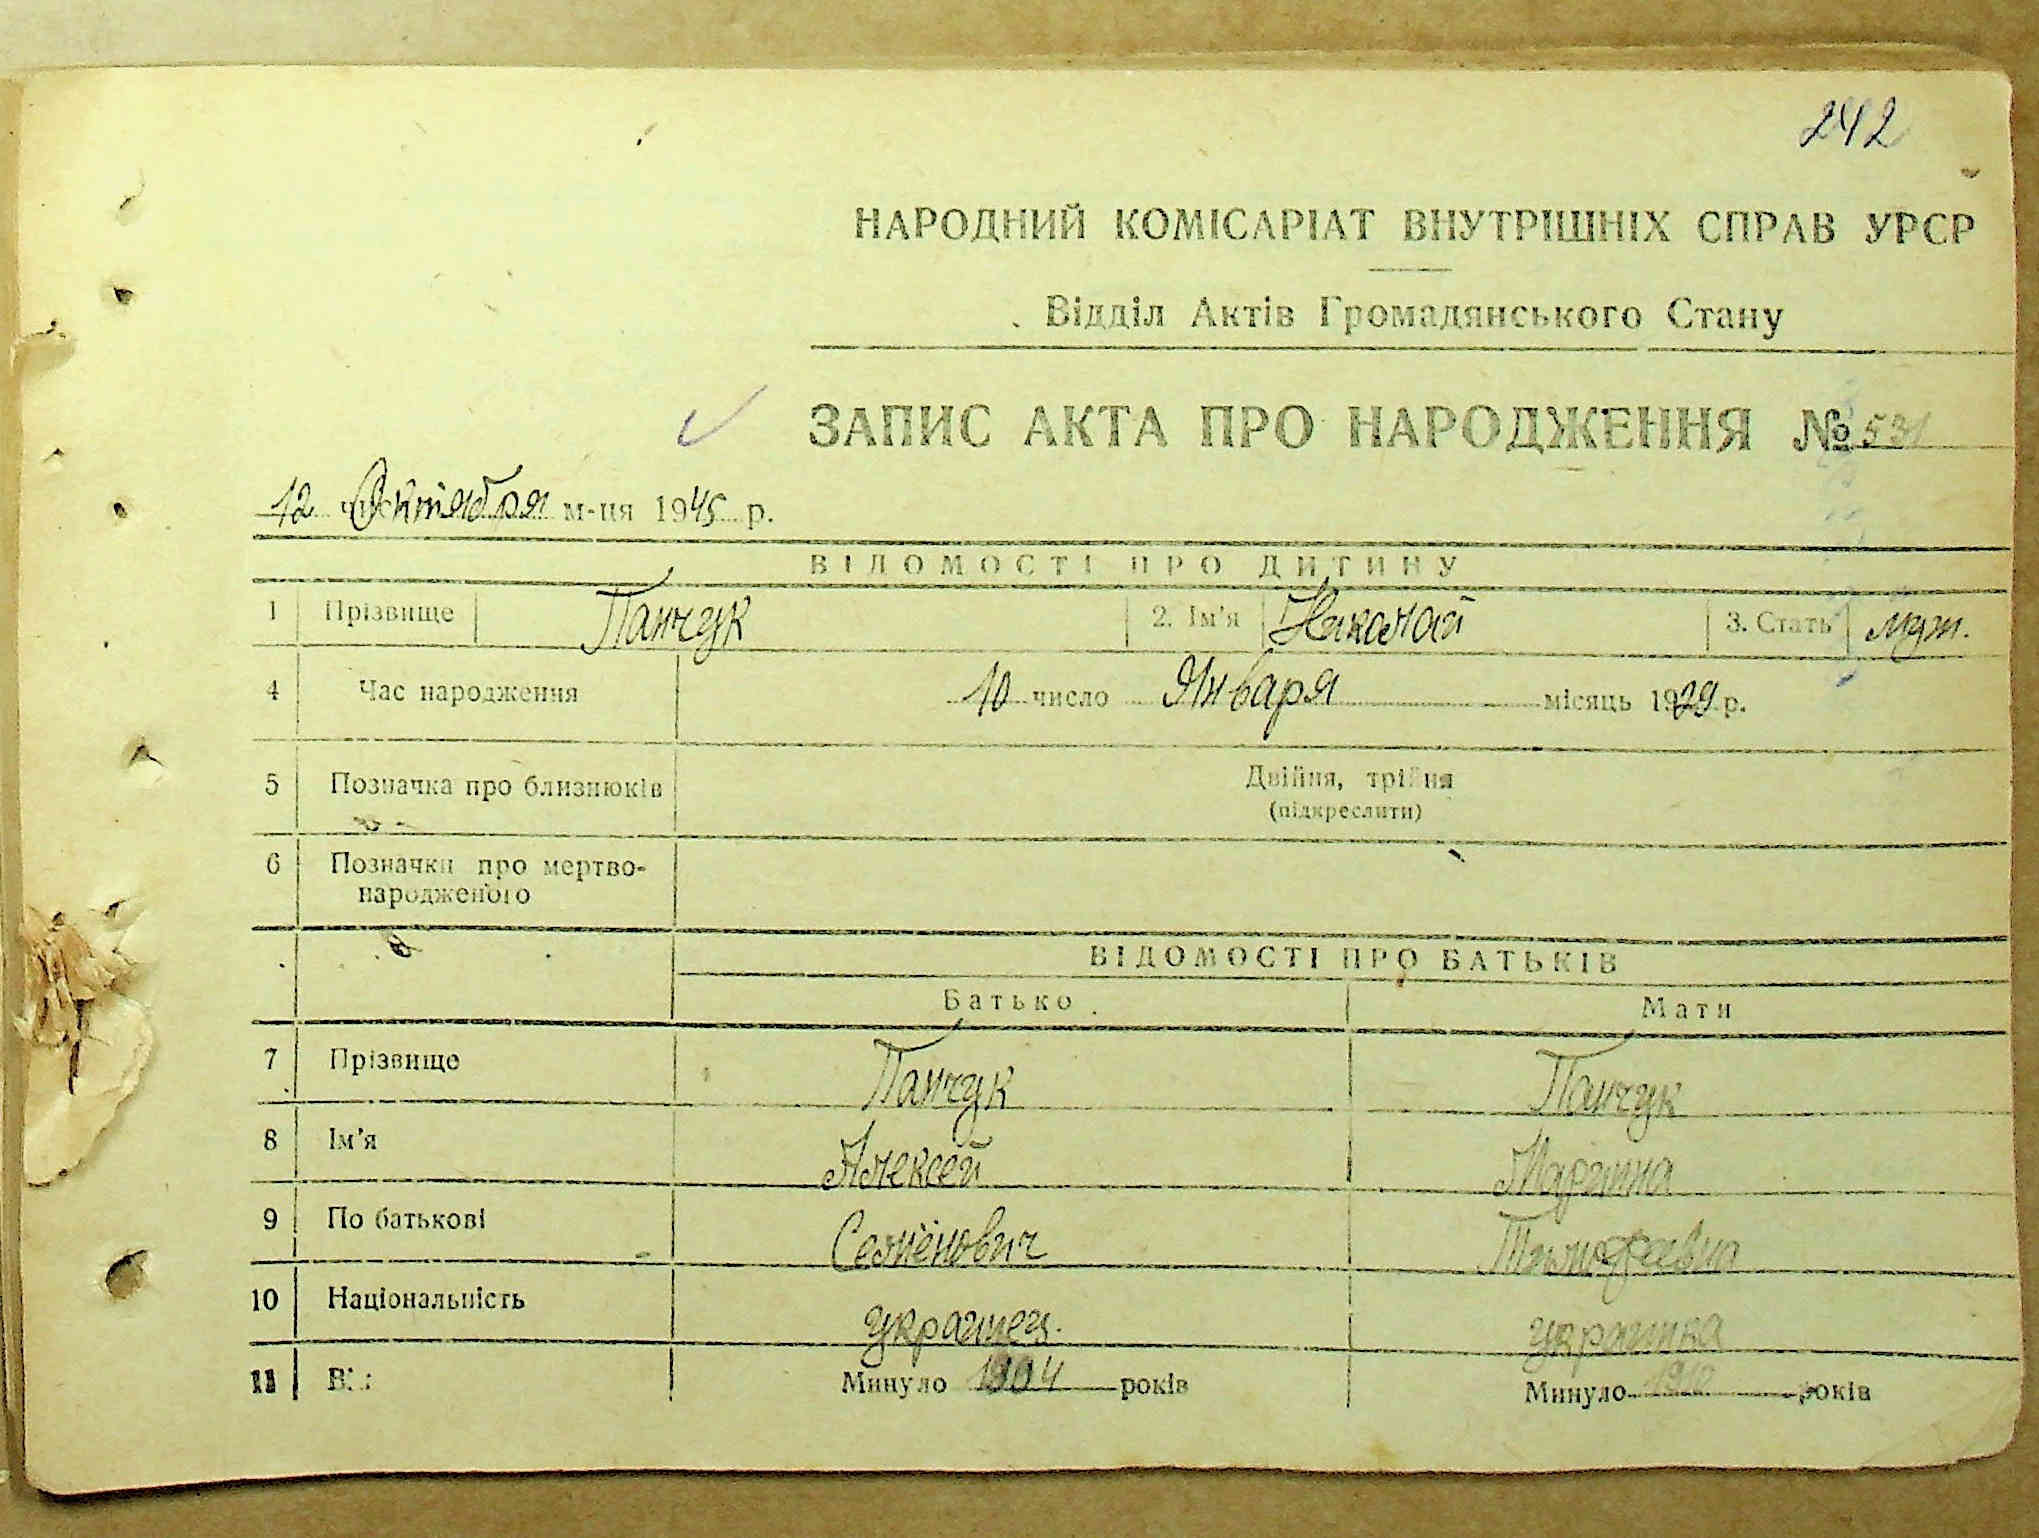 242
НАРОДНИЙ КОМІСАРІАТ ВНУТРІШНІХ СПРАВ УРСР
Відділ Актів Громадянського Стану
ЗАПИС АКТА ПРО НАРОДЖЕННЯ № 531
12 Октября м-ця 1945 р.
ВІДОМОСТІ ПРО ДИТИНУ
1 Прізвище Панчук 2. Ім'я Николай 3. Стать муж.
4 Час народження 10 число Января місяць 1929 р.
5 Позначка про близнюків Двійня, трійня
(підкреслити)
6 Позначки про мертво-
народженого
ВІДОМОСТІ ПРО БАТЬКІВ
Батько Мати
7 Прізвище Панчук Панчук
8 Ім'я Алексей Марина
9 По батькові Семёнович Тимофеевна
10 Національність украинец. украинка
11 Минуло 1904 років Минуло 1910 років